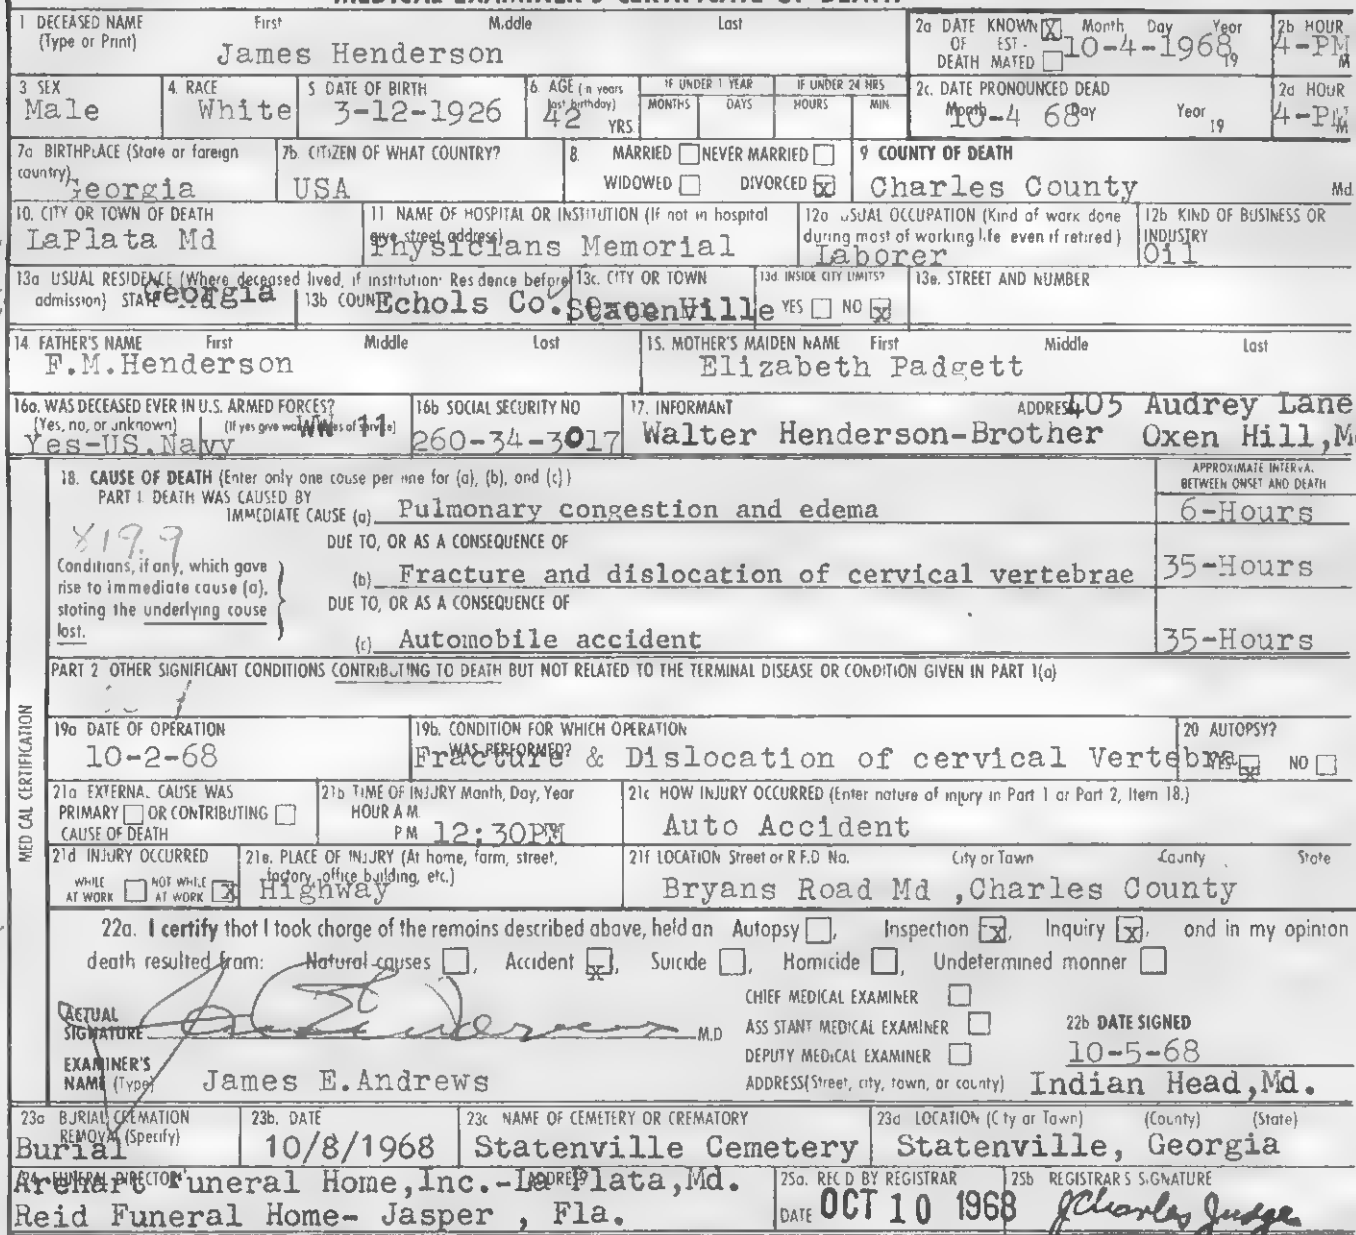 MEDICAL EXAMINER'S CERTIFICATE OF DEATH
1 DECEASED NAME (Type or Print) First Middle Last
James Henderson
2a DATE KNOWN [X] OF EST- DEATH MATED [ ] Month Day Year
10-4-1968 19
2b HOUR
4-PM M
3 SEX
Male
4. RACE
White
5 DATE OF BIRTH
3-12-1926
6. AGE (In years last birthday)
42 YRS
IF UNDER 1 YEAR MONTHS DAYS
IF UNDER 24 HRS HOURS MIN
2c. DATE PRONOUNCED DEAD Month Day Year 19
10-4 68
2d HOUR
4-PM M
7a BIRTHPLACE (State or foreign country)
Georgia
7b. CITIZEN OF WHAT COUNTRY?
USA
8. MARRIED [ ] NEVER MARRIED [ ]
WIDOWED [ ] DIVORCED [X]
9 COUNTY OF DEATH
Charles County Md
10. CITY OR TOWN OF DEATH
LaPlata Md
11 NAME OF HOSPITAL OR INSTITUTION (If not in hospital give street address)
Physicians Memorial
12a USUAL OCCUPATION (Kind of work done during most of working life even if retired)
Laborer
12b KIND OF BUSINESS OR INDUSTRY
Oil
13a USUAL RESIDENCE (Where deceased lived, if institution: Residence before admission) STATE
Georgia
13b COUNTY
Echols Co.
13c. CITY OR TOWN
Statenville
13d. INSIDE CITY LIMITS?
YES [ ] NO [X]
13e. STREET AND NUMBER
14. FATHER'S NAME First Middle Last
F.M.Henderson
15. MOTHER'S MAIDEN NAME First Middle Last
Elizabeth Padgett
16a. WAS DECEASED EVER IN U.S. ARMED FORCES?
(Yes, no, or unknown) (If yes give war or dates of service)
Yes-US.Navy WW 11
16b SOCIAL SECURITY NO
260-34-3017
17. INFORMANT ADDRESS
Walter Henderson-Brother
405 Audrey Lane
Oxen Hill,M
MEDICAL CERTIFICATION
18. CAUSE OF DEATH (Enter only one cause per line for (a), (b), and (c))
APPROXIMATE INTERVAL BETWEEN ONSET AND DEATH
PART 1. DEATH WAS CAUSED BY
IMMEDIATE CAUSE (a) Pulmonary congestion and edema 6-Hours
819.9
DUE TO, OR AS A CONSEQUENCE OF
Conditions, if any, which gave rise to immediate cause (a), stating the underlying cause last.
(b) Fracture and dislocation of cervical vertebrae 35-Hours
DUE TO, OR AS A CONSEQUENCE OF
(c) Automobile accident 35-Hours
PART 2 OTHER SIGNIFICANT CONDITIONS CONTRIBUTING TO DEATH BUT NOT RELATED TO THE TERMINAL DISEASE OR CONDITION GIVEN IN PART 1(a)
19a DATE OF OPERATION
10-2-68
19b. CONDITION FOR WHICH OPERATION WAS PERFORMED?
Fracture & Dislocation of cervical Vertebra
20 AUTOPSY?
YES [X] NO [ ]
21a EXTERNAL CAUSE WAS
PRIMARY [ ] OR CONTRIBUTING [ ]
CAUSE OF DEATH
21b TIME OF INJURY Month, Day, Year
HOUR A M
P M 12:30PM
21c HOW INJURY OCCURRED (Enter nature of injury in Part 1 or Part 2, Item 18.)
Auto Accident
21d INJURY OCCURRED
WHILE AT WORK [ ] NOT WHILE AT WORK [X]
21e. PLACE OF INJURY (At home, farm, street, factory, office building, etc.)
Highway
21f LOCATION Street or R.F.D No. City or Town County State
Bryans Road Md ,Charles County
22a. I certify that I took charge of the remains described above, held an Autopsy [ ], Inspection [X], Inquiry [X], and in my opinion
death resulted from: Natural causes [ ], Accident [X], Suicide [ ], Homicide [ ], Undetermined manner [ ]
ACTUAL SIGNATURE M.D
CHIEF MEDICAL EXAMINER [ ]
ASSISTANT MEDICAL EXAMINER [ ]
DEPUTY MEDICAL EXAMINER [ ]
22b DATE SIGNED
10-5-68
EXAMINER'S NAME (Type) James E.Andrews
ADDRESS(Street, city, town, or county) Indian Head,Md.
23a BURIAL CREMATION REMOVAL (Specify)
Burial
23b. DATE
10/8/1968
23c NAME OF CEMETERY OR CREMATORY
Statenville Cemetery
23d LOCATION (City or Town) (County) (State)
Statenville, Georgia
24. FUNERAL DIRECTOR ADDRESS
Arehart Funeral Home,Inc.-La Plata,Md.
Reid Funeral Home- Jasper , Fla.
25a. REC'D BY REGISTRAR
DATE OCT 10 1968
25b REGISTRAR'S SIGNATURE
J Charles Judge